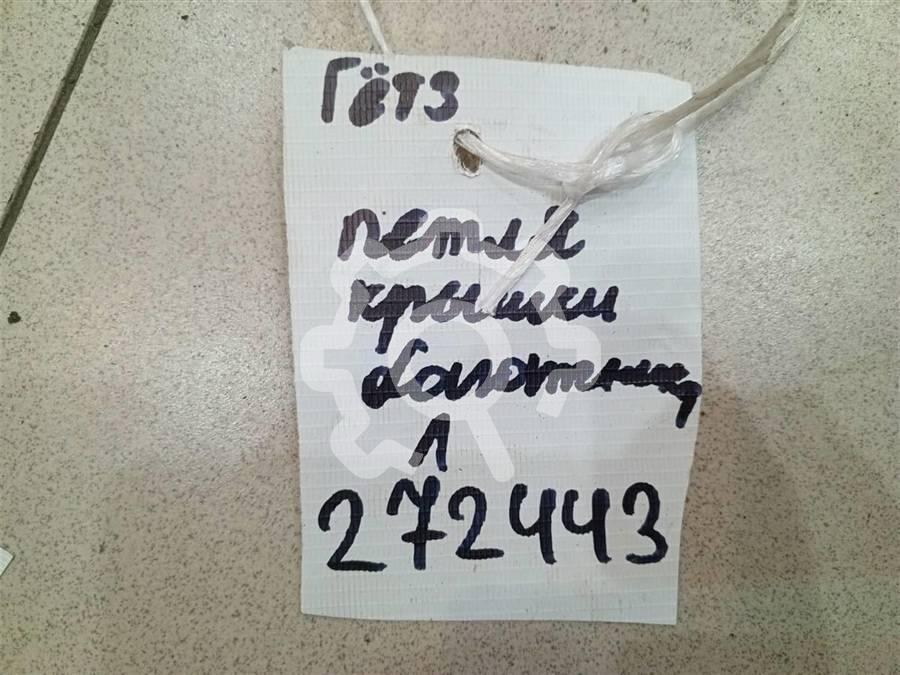 Гётз
петля
крышки
Л
272443